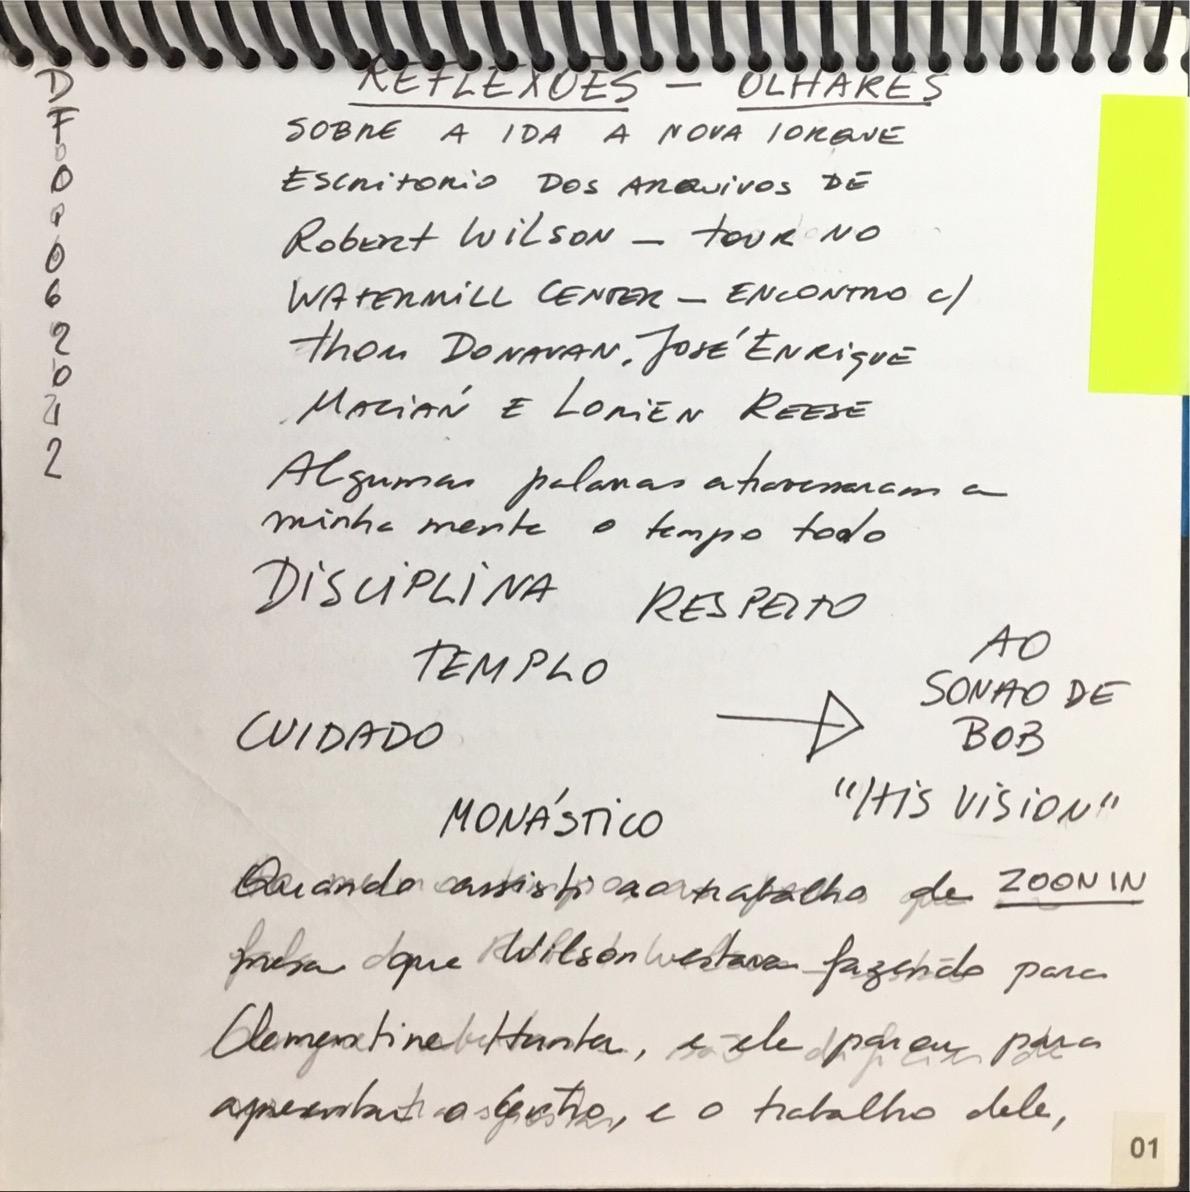 REFLEXÕES — OLHARES
SOBRE A IDA A NOVA IORQUE
ESCRITORIO DOS ARQUIVOS DE
ROBERT WILSON — TOUR NO
WATERMILL CENTER — ENCONTRO C/
Thom DONAVAN, JOSÉ ENRIQUE
MACIÁN E LORIEN REESE
Algumas palavras atravessaram a
minha mente o tempo todo
DISCIPLINA RESPEITO
TEMPLO
CUIDADO
MONÁSTICO
AO
SONHO DE
BOB
"HIS VISION"
Quando assisti ao trabalho de ZOON IN
que Wilson estava fazendo para
Clementine Hunter, e ele parou para
apresentar o Centro, e o trabalho dele,
D
F
0
6
2
0
1
2
01